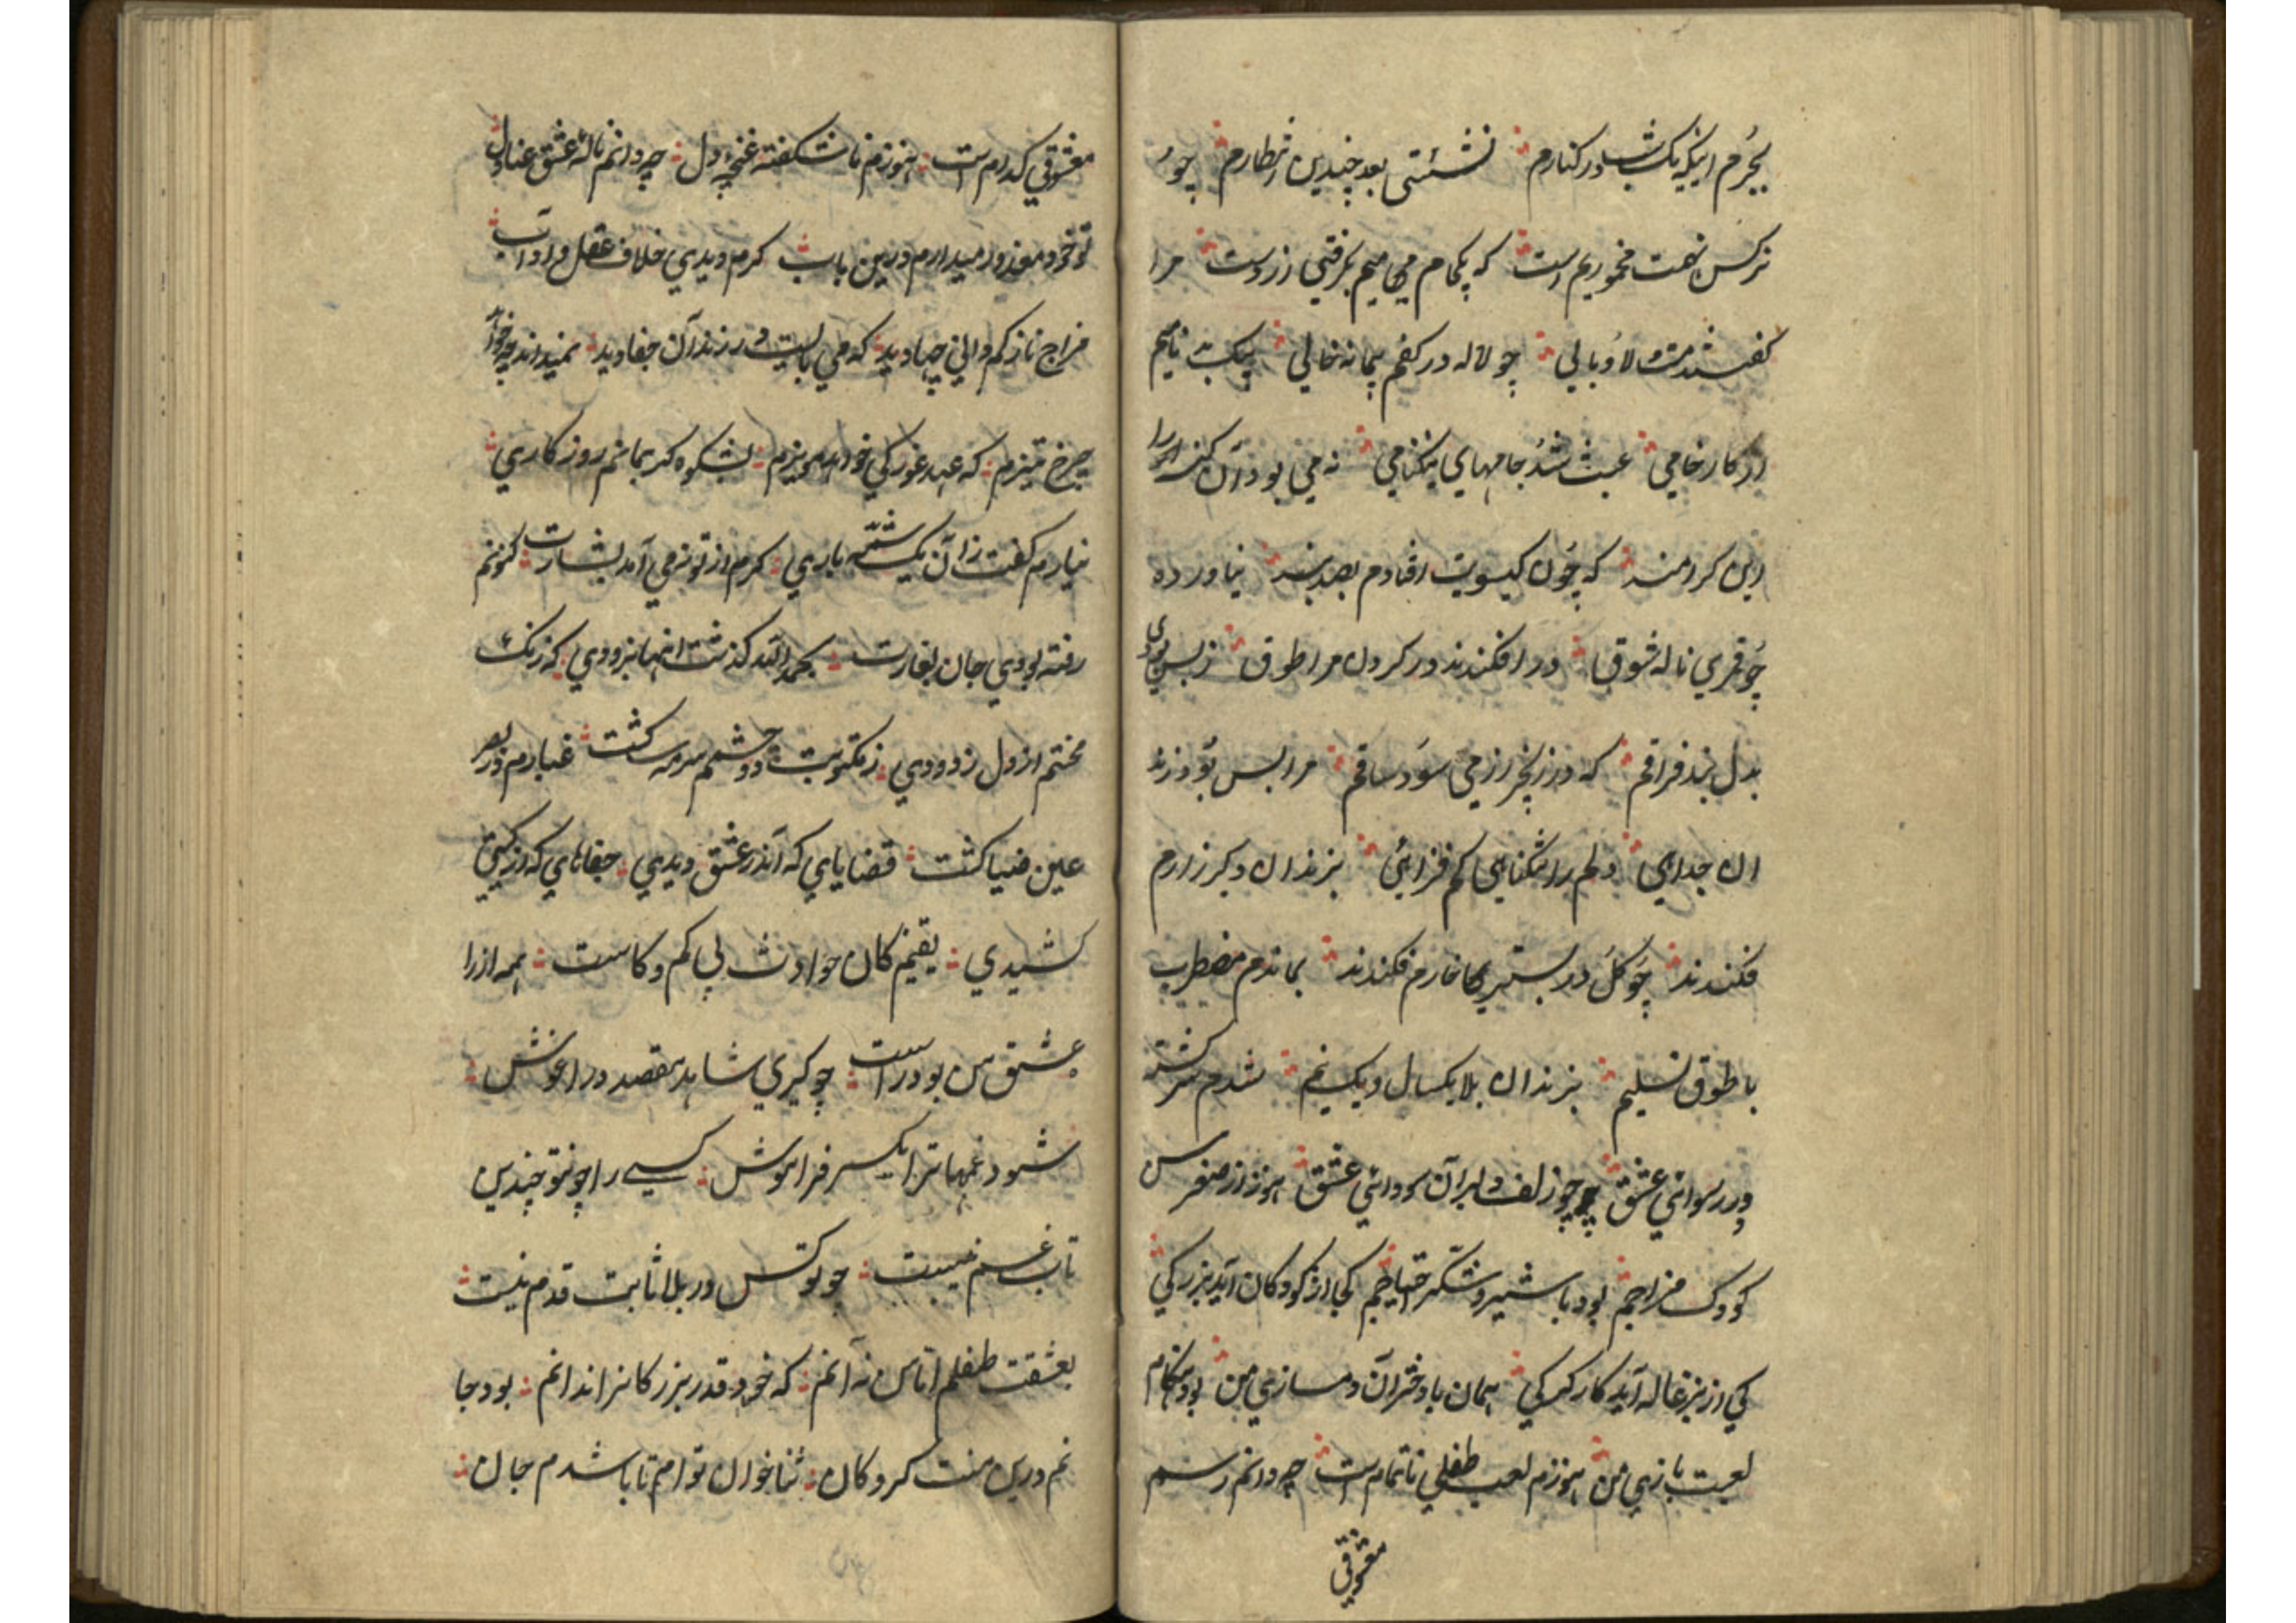 بجرم اینکه یک شب در کنارم نشستی بعد چندین انتظارم چو
نرگس نعمت مخموریم است که یکجام میم بگرفتی از دست مرا
گفتند مست و لاوبالی چو لاله در کفم پیمانه خالی
در کار خامی عبث شد جامهای نیکنامی نه می بود آن
این کردمند که چون کیسویت افتادم بصد بند نیاورده
چو قمری ناله شوق در افکندند در کردن مرا طوق ز بس بودی
بدل بند فراقم که در زنجیر زرمی سود ساقم مرا بس بود زند
ان جدایی دلم را تنکنای کم فزایی بزندان دکر زارم
فکندند چو کل در بستر خارم فکندند بماندم مضطرب
با طوق تسلیم بزندان بلا یکسال و یکنیم شدم سرکشته
در رسوائی عشق چو زلف دلبران سودائی عشق هنوز از صغر سن
کودک مزاجم بود با شیر و شکر احتیاجم کی از کودکان آید بزرکی
کی از بزغاله آید کار کرکی همان با دختران دمسازی من بود هنکام
لعبت بازی من هنوزم لعب طفلی ناتمام است چه دانم رسم
معشوقی
معشوقی کدام است هنوزم ناشکفته غنچه دل چه دانم ناله عشق عنادل
تو خود معذور میدارم درین باب کرم دیدی خلاف عقل و اداب
مزاج نازکم دانی چها دید که می بایست در زندان جفا دید نمیداند چه
چرخ تیزم که عهد غورکی خود مویزم بشکوه کر بمانم روزکاری
نیارم کفت زان یک شمه باری کرم از تو نرمی آمد بشارت کنونم
رفته بودی جان بغارت بحمدالله کذشت اینها بزودی که زنک
محنتم از دل زدودی ز مکتوبت دو چشمم سرمه سا کشت غبارم نور
عین ضیا کشت قضایای که اندر عشق دیدی جفاهای که از کیتی
کشیدی یقینم کان حوادث بی کم و کاست همه از را
عشق من بود راست چو کیری شاهد مقصد در اغوش
شود غمها ترا یکسر فراموش کسی را چو تو چندین
تاب غم نیست چو تو کس در بلا ثابت قدم نیست
بعشقت طفلم اما من نه آنم که خود قدر بزرکانرا ندانم بود جا
نم درین منت کروکان ثنا خوان توام تا باشدم جان